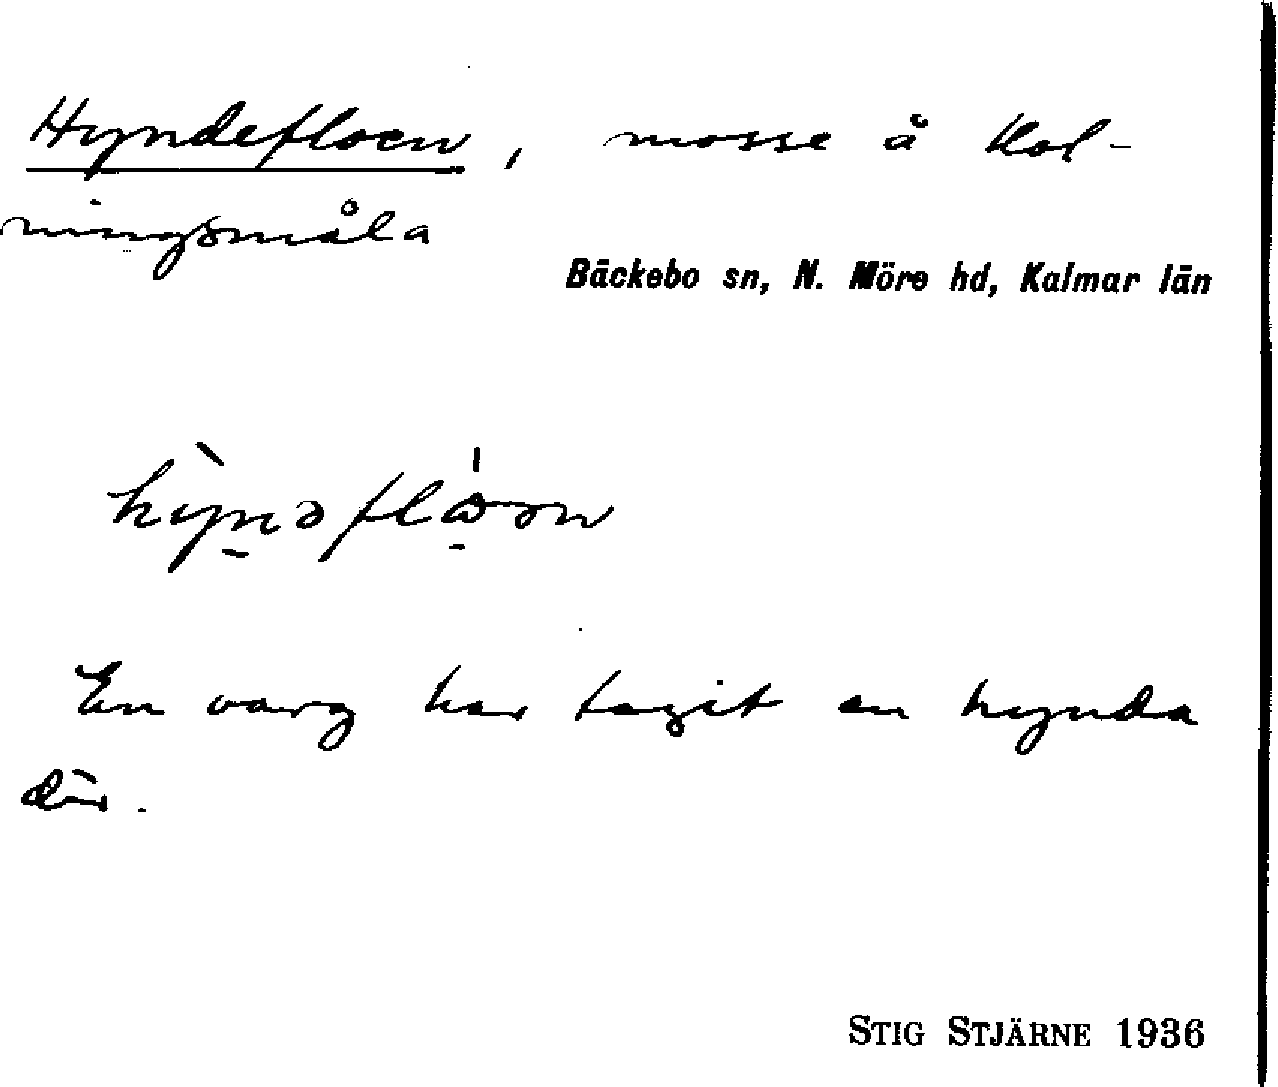 Hyndefloen, mosse å Kol-
ningsmåla
Bäckebo sn, N. Möre hd, Kalmar län
En varg har tagit en hynda
där.
STIG STJÄRNE 1936